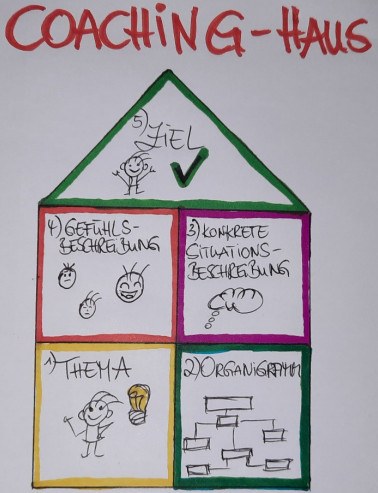 COACHING-HAUS
5) ZIEL
4) GEFÜHLS-
BESCHREIBUNG
3) KONKRETE
SITUATIONS-
BESCHREIBUNG
1) THEMA
2) ORGANIGRAMM